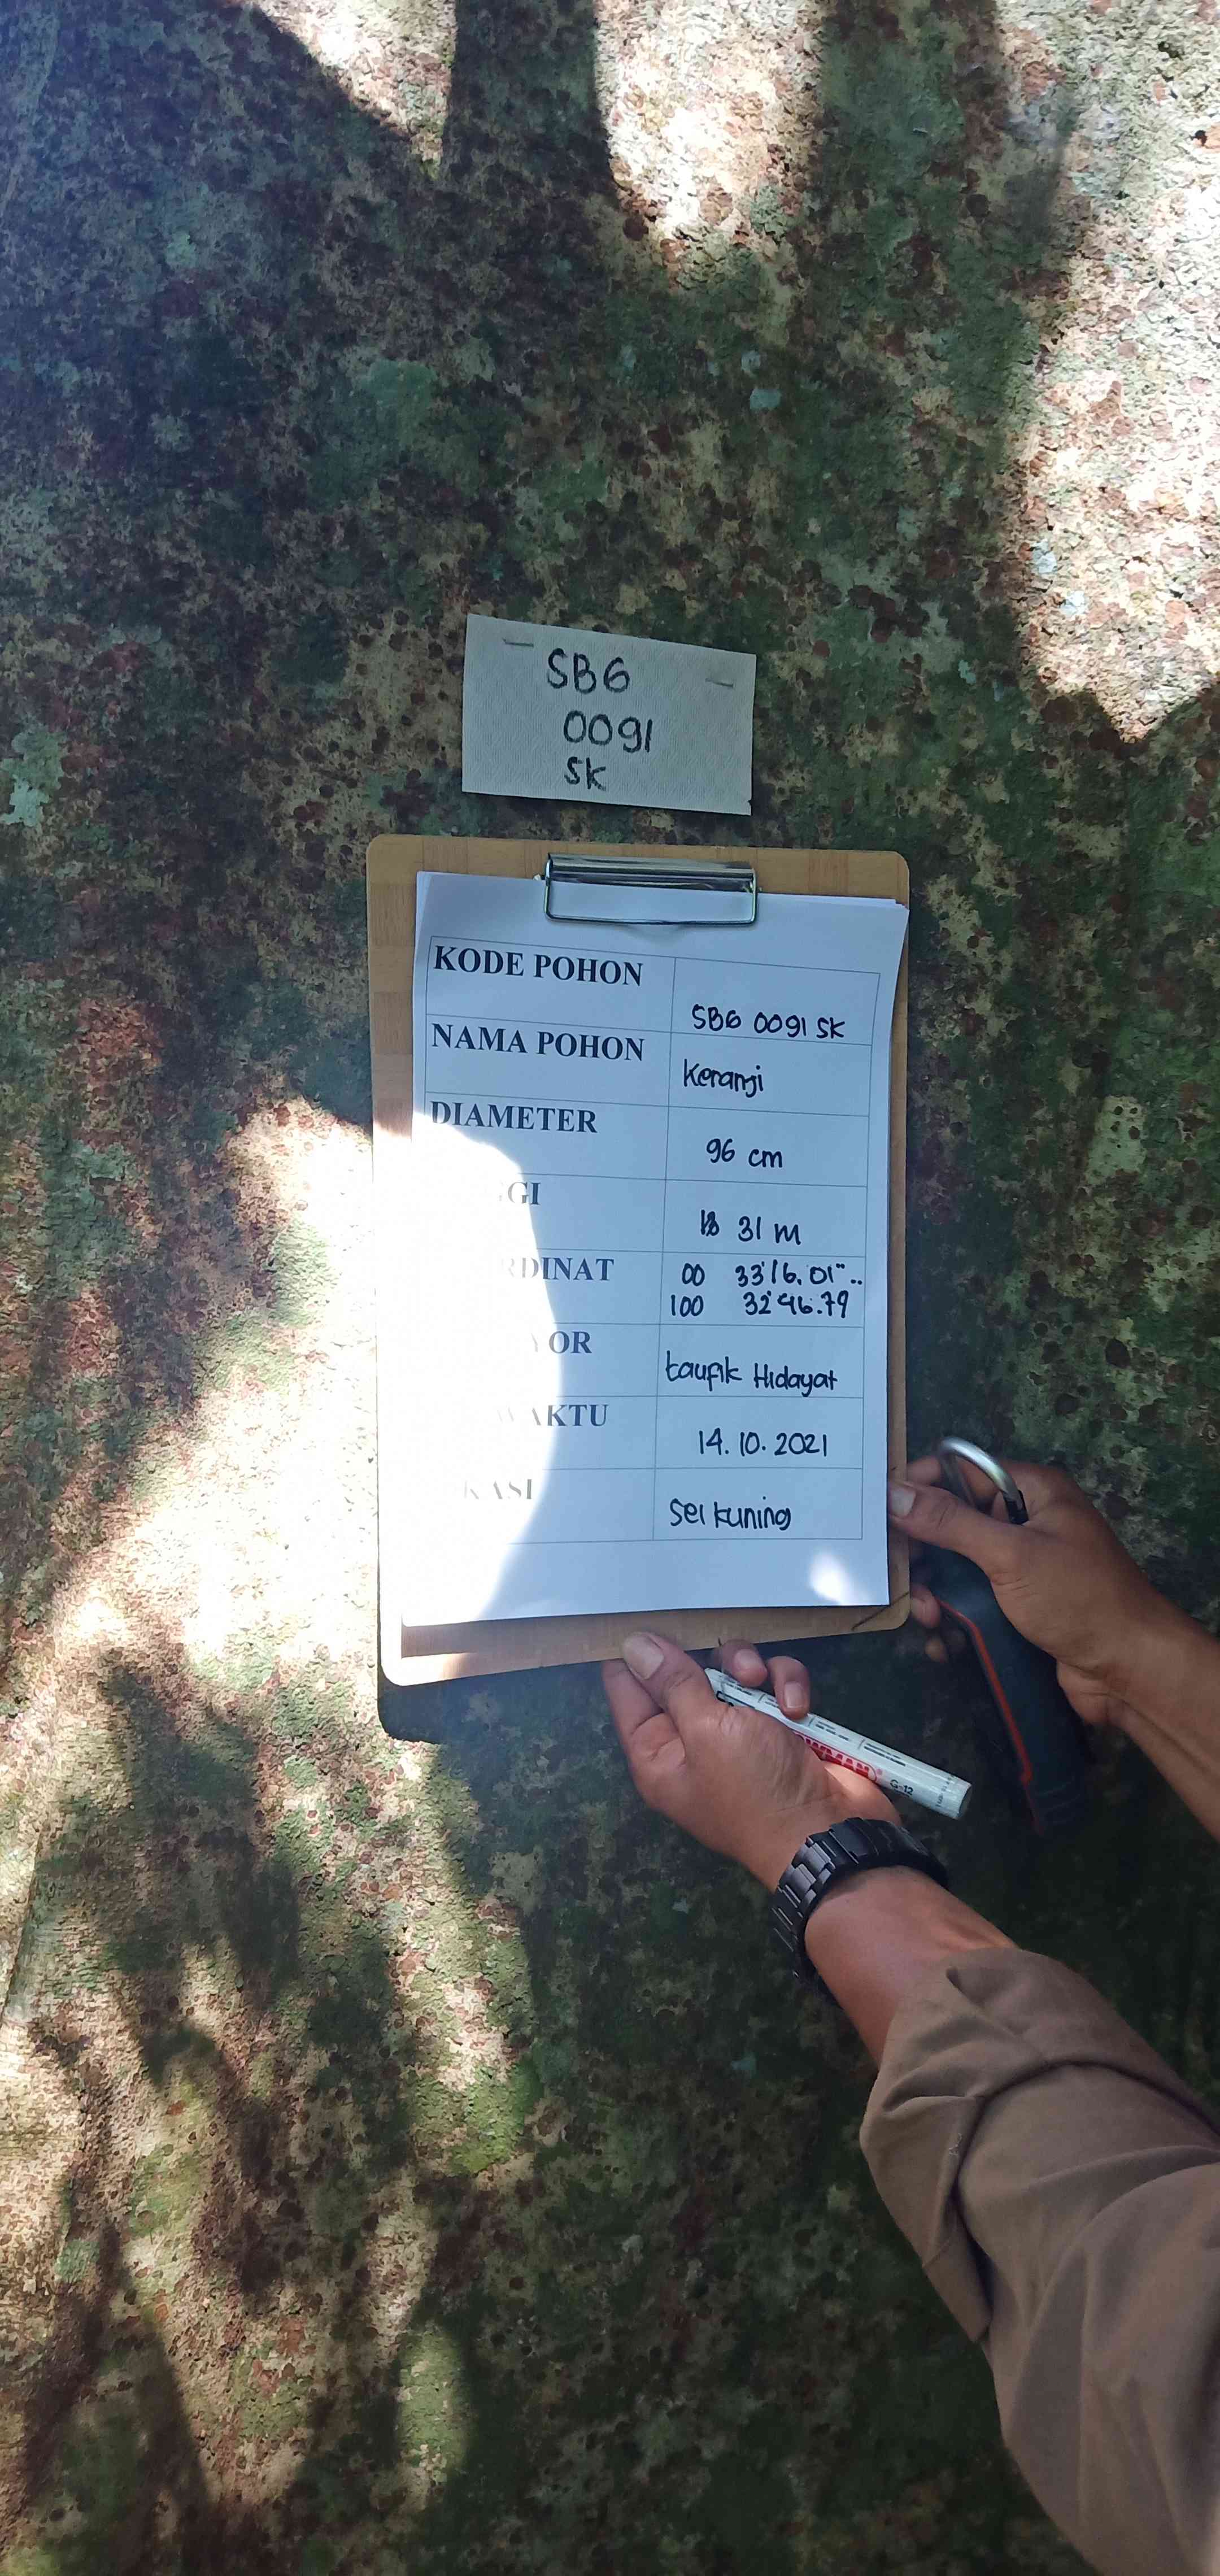 SBG
0091
SK
KODE POHON
SBG 0091 SK
NAMA POHON
Keranji
DIAMETER
96 cm
GGI
31 m
RDINAT
00 33'16.01"..
100 32'46.79
YOR
taufik Hidayat
WAKTU
14.10.2021
KASI
Sei kuning
G-12